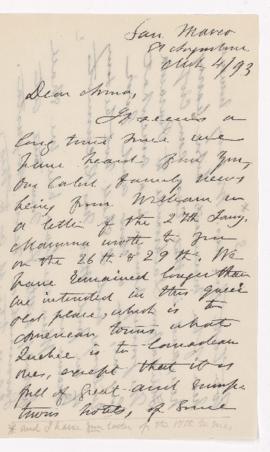 San Marco
St Augustine
Mch 4/93
Dear Anna,
It seems a
long time since we
have heard from you,
our latest family news
being from William in
a letter of the 27th Jany.
Mamma wrote to you
on the 26th & 29th. We
have remained longer than
we intended in this queer
old place, which is to
American towns what
Quebec is to Canadian
ones, except that it is
full of great and sump-
tuous hotels, of some
* and I have your letter of the 17th to